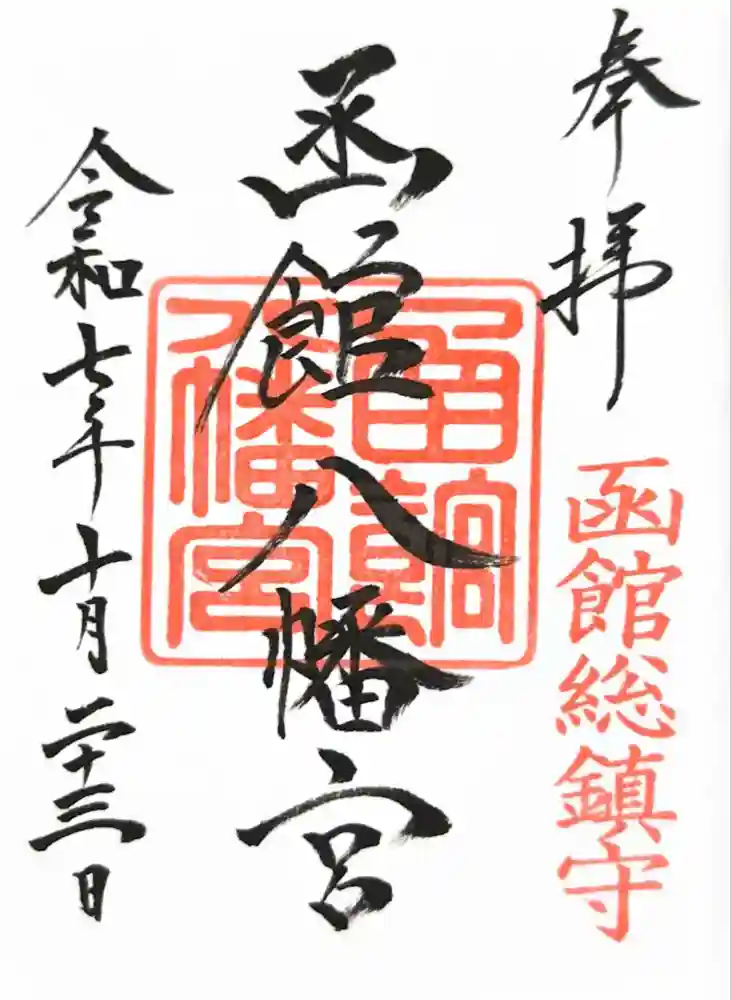 奉拝
函館総鎮守
函館八幡宮
令和七年十月二十三日